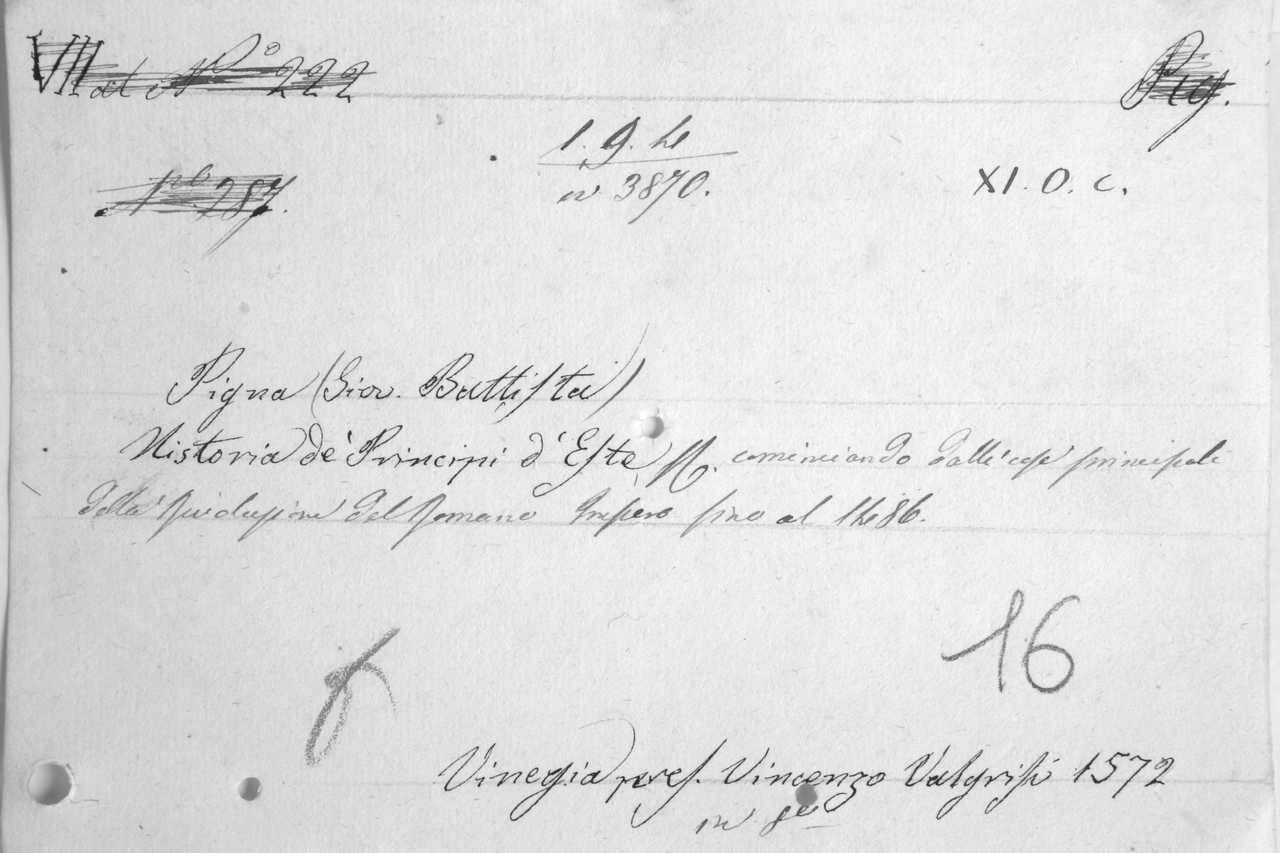 VIII ad Nº 222 Pig.
1. g. h
Nº 287. N 3870. XI. O. C.
Pigna (Giov. Battista)
Historia de' Principi d' Este, cominciando dalle cose principali
della Rivoluzione del Romano Impero fino al 1486.
16
Vinegia pres. Vincenzo Valgrisi 1572
in 8º